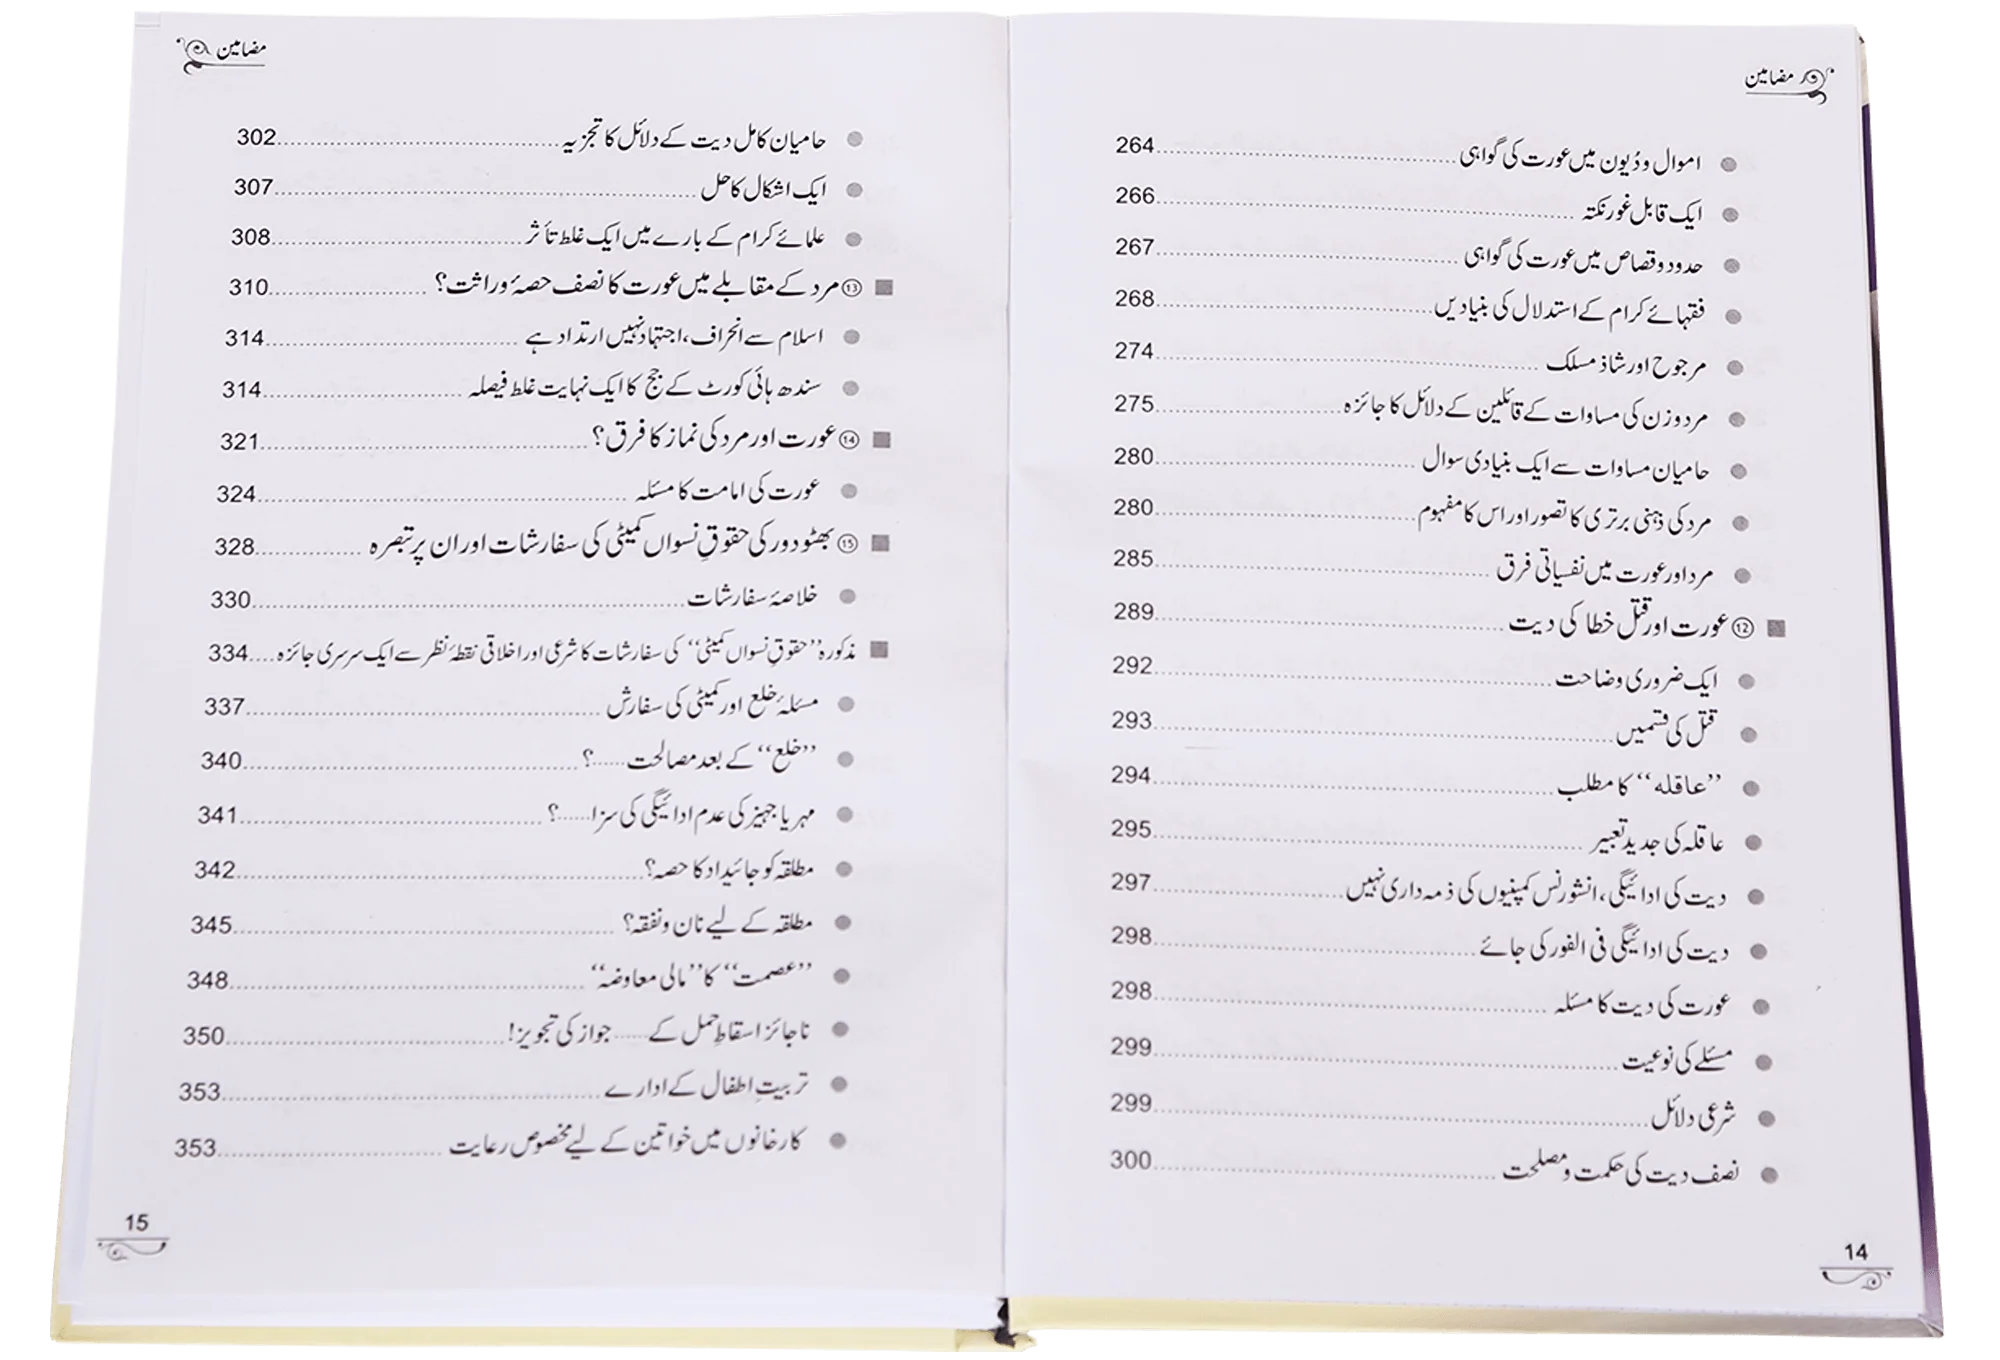 مضامین
اموال و دُیون میں عورت کی گواہی 264
ایک قابل غور نکتہ 266
حدود و قصاص میں عورت کی گواہی 267
فقہائے کرام کے استدلال کی بنیادیں 268
مرجوح اور شاذ مسلک 274
مرد و زن کی مساوات کے قائلین کے دلائل کا جائزہ 275
حامیان مساوات سے ایک بنیادی سوال 280
مرد کی ذہنی برتری کا تصور اور اس کا مفہوم 280
مرد اور عورت میں نفسیاتی فرق 285
⑫ عورت اور قتل خطا کی دیت 289
ایک ضروری وضاحت 292
قتل کی قسمیں 293
’’عاقلہ‘‘ کا مطلب 294
عاقلہ کی جدید تعبیر 295
دیت کی ادائیگی، انشورنس کمپنیوں کی ذمہ داری نہیں 297
دیت کی ادائیگی فی الفور کی جائے 298
عورت کی دیت کا مسئلہ 298
مسئلے کی نوعیت 299
شرعی دلائل 299
نصف دیت کی حکمت و مصلحت 300
14
مضامین
حامیان کامل دیت کے دلائل کا تجزیہ 302
ایک اشکال کا حل 307
علمائے کرام کے بارے میں ایک غلط تأثر 308
⑬ مرد کے مقابلے میں عورت کا نصف حصۂ وراثت؟ 310
اسلام سے انحراف، اجتہاد نہیں ارتداد ہے 314
سندھ ہائی کورٹ کے جج کا ایک نہایت غلط فیصلہ 314
⑭ عورت اور مرد کی نماز کا فرق؟ 321
عورت کی امامت کا مسئلہ 324
⑮ بھٹو دور کی حقوقِ نسواں کمیٹی کی سفارشات اور ان پر تبصرہ 328
خلاصۂ سفارشات 330
مذکورہ ’’حقوقِ نسواں کمیٹی‘‘ کی سفارشات کا شرعی اور اخلاقی نقطۂ نظر سے ایک سرسری جائزہ .... 334
مسئلۂ خلع اور کمیٹی کی سفارش 337
’’خلع‘‘ کے بعد مصالحت......؟ 340
مہر یا جہیز کی عدم ادائیگی کی سزا......؟ 341
مطلقہ کو جائیداد کا حصہ؟ 342
مطلقہ کے لیے نان و نفقہ؟ 345
’’عصمت‘‘ کا ’’مالی معاوضہ‘‘ 348
ناجائز اسقاطِ حمل کے ...... جواز کی تجویز! 350
تربیتِ اطفال کے ادارے 353
کارخانوں میں خواتین کے لیے مخصوص رعایت 353
15